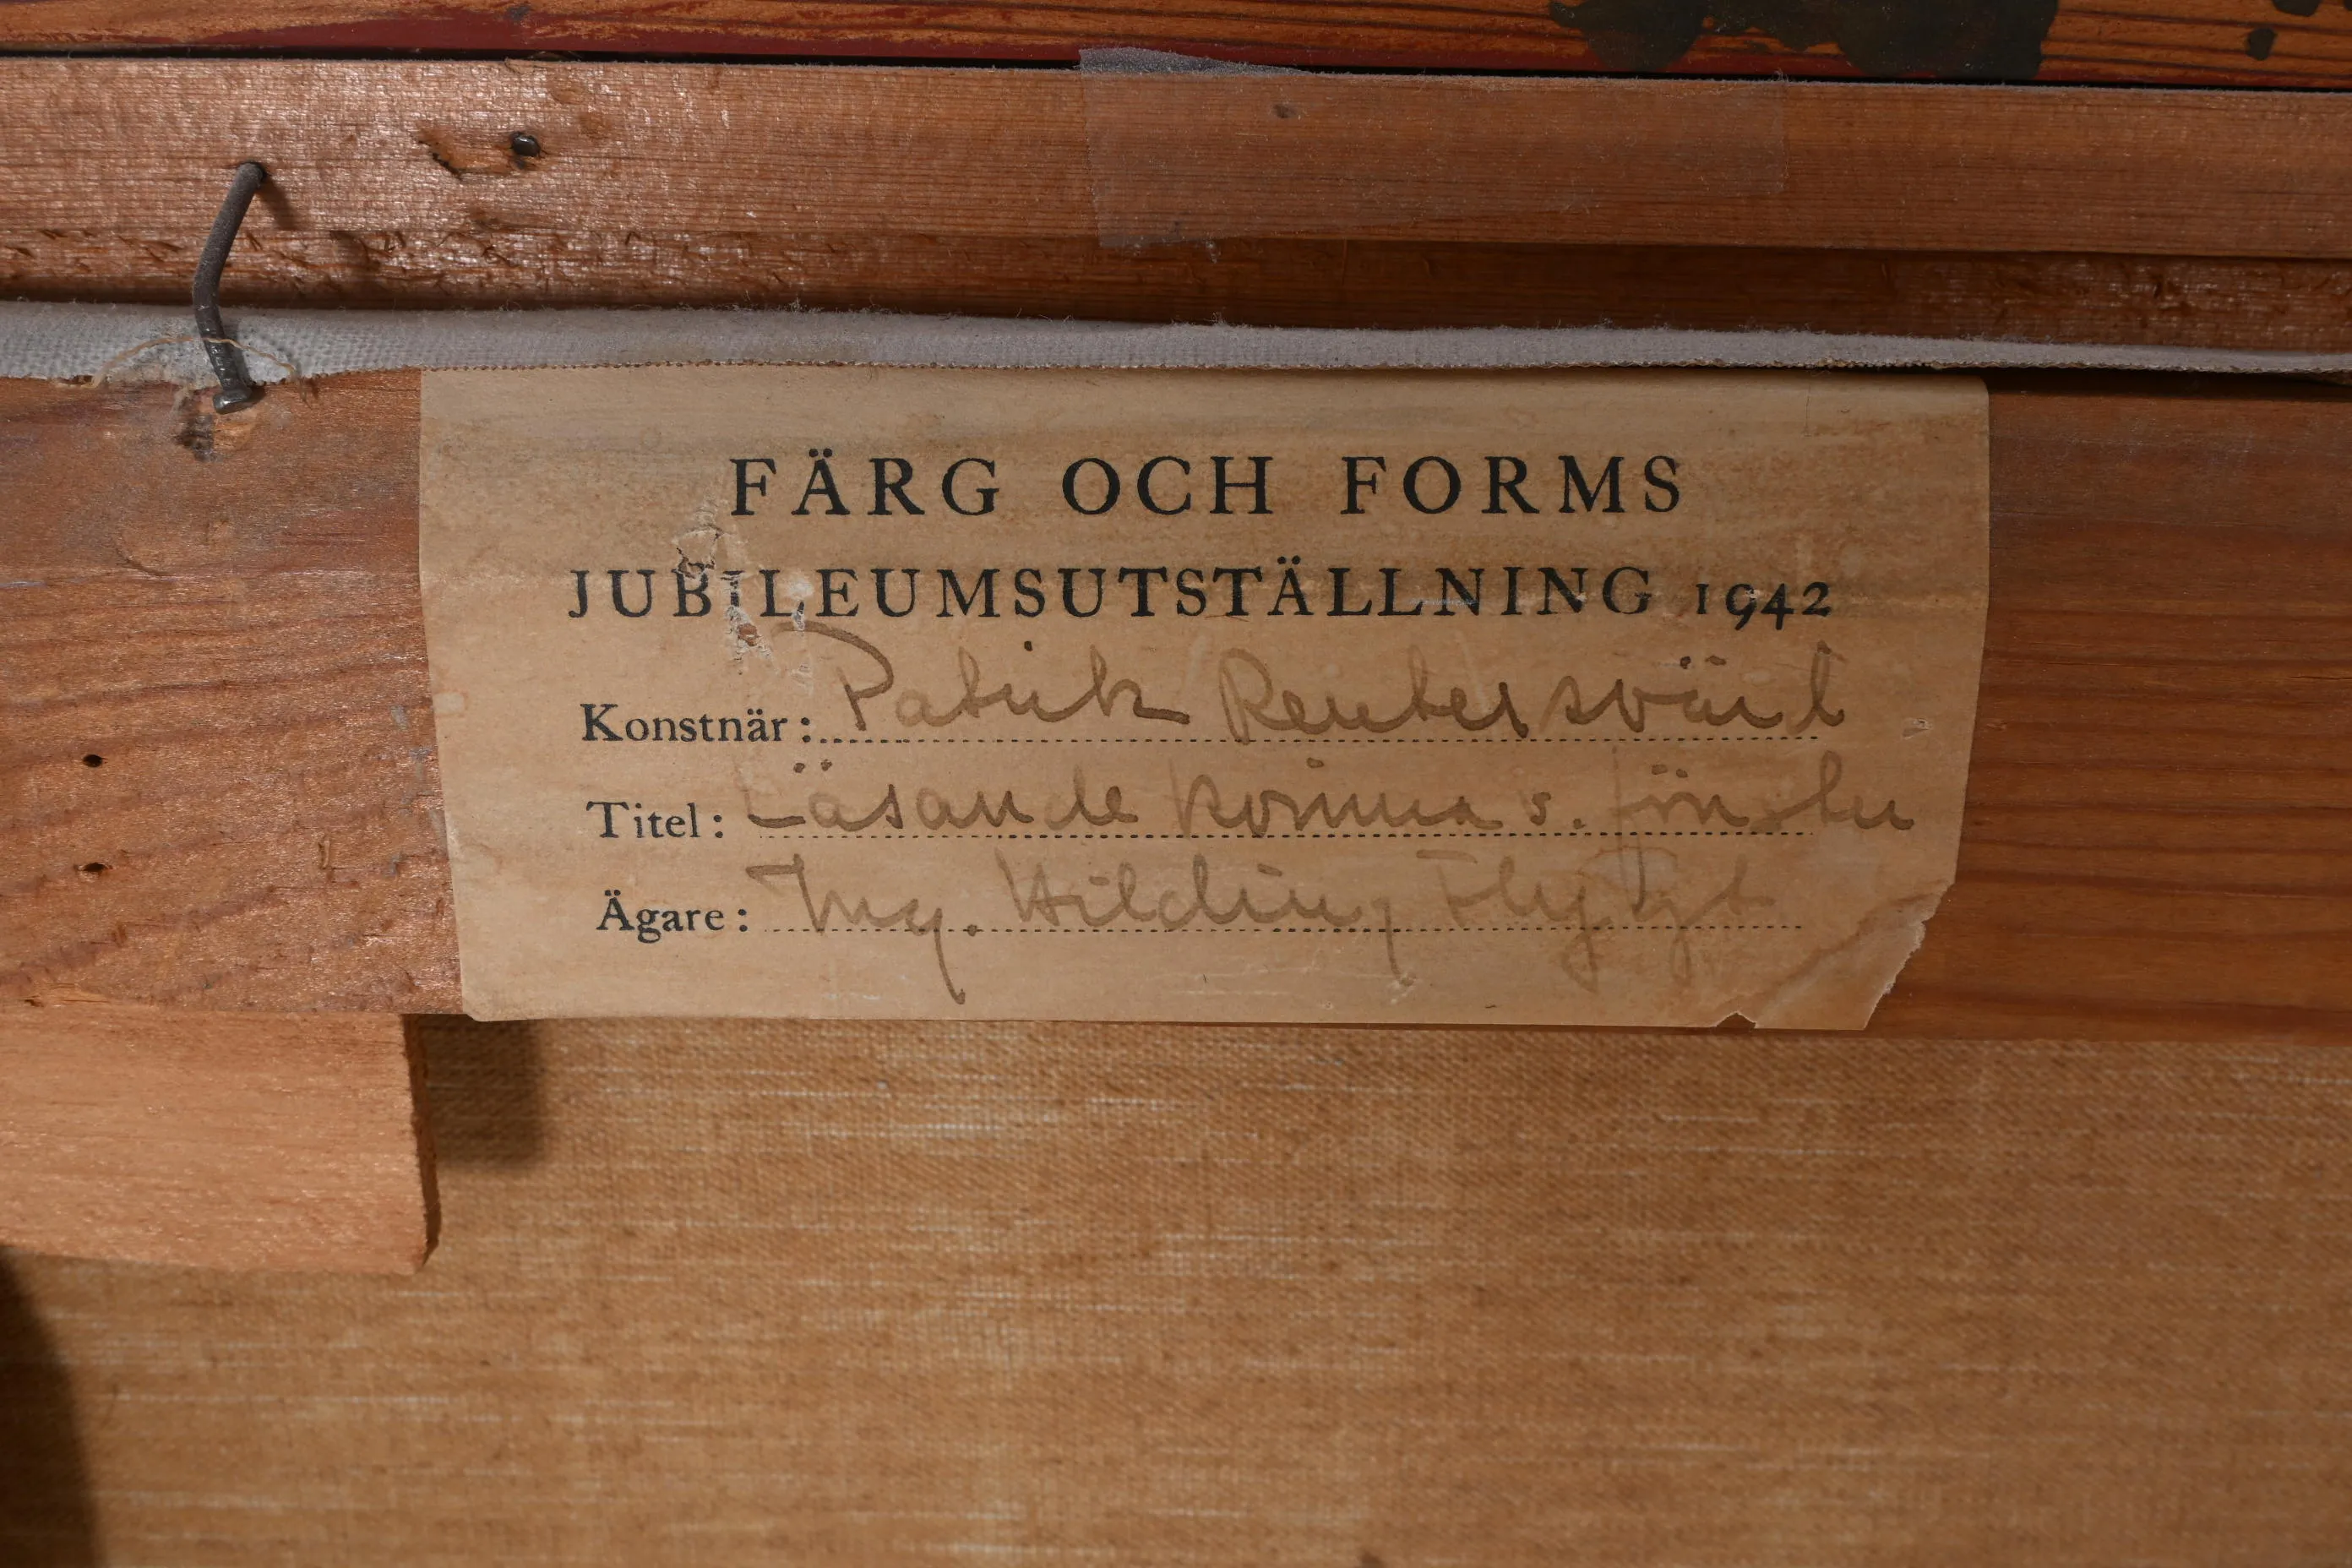 FÄRG OCH FORMS
JUBILEUMSUTSTÄLLNING 1942
Konstnär: Patrik Reuterswärd
Titel: Läsande kvinna v. fönster
Ägare: Ing. Hilding Flygt